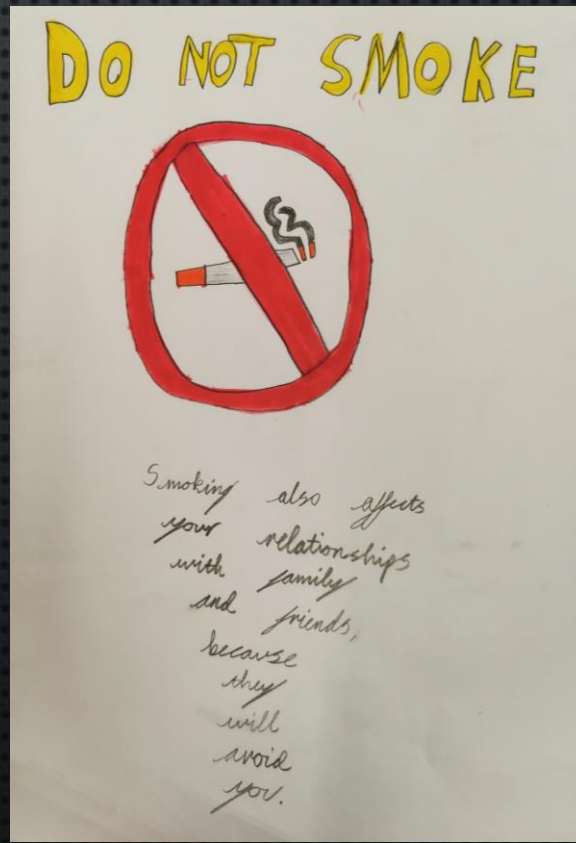 DO NOT SMOKE
Smoking also affects
your relationships
with family
and friends,
because
they
will
avoid
you.